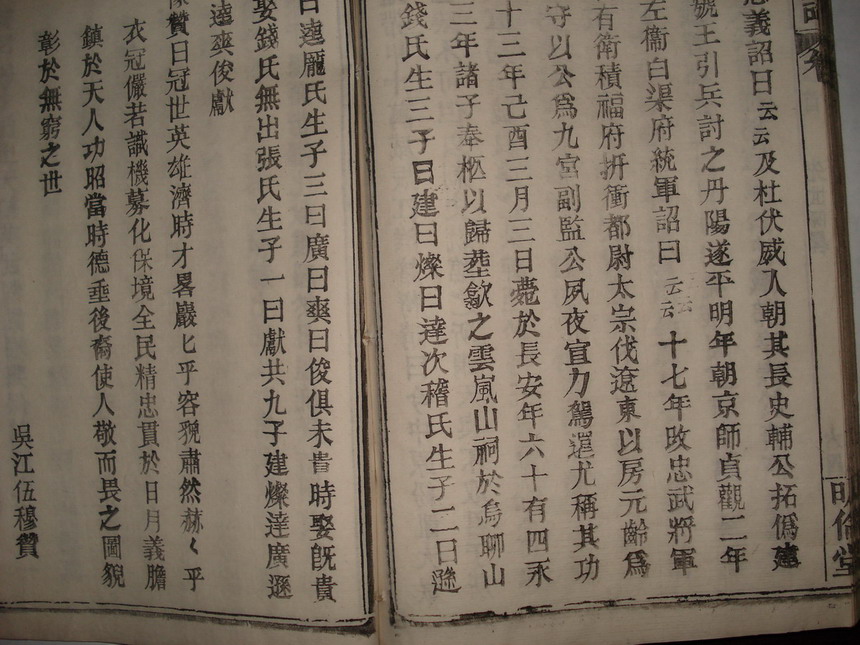 明倫堂
忠義詔曰云云及杜伏威入朝其長史輔公拓僞建
號王引兵討之丹陽遂平明年朝京師貞觀二年
左衞白渠府統軍詔曰云云十七年改忠武將軍
有衛積福府折衝都尉太宗伐遼東以房元齡爲
守以公爲九宮副監公夙夜宣力駕還尤稱其功
十三年己酉三月三日薨於長安年六十有四永
三年諸子奉柩以歸塟歙之雲嵐山祠於烏聊山
錢氏生三子曰建曰燦曰達次稽氏生子二曰遜
曰逵龐氏生子三曰廣曰爽曰俊俱未貴時娶旣貴
娶錢氏無出張氏生子一曰獻共九子建燦達廣遜
逵爽俊獻
像贊曰冠世英雄濟時才畧巖匕乎容貌肅然赫く乎
衣冠儼若識機募化保境全民精忠貫於日月義膽
鎮於天人功昭當時德垂後裔使人敬而畏之圖貌
彰於無窮之世
吳江伍穆贊